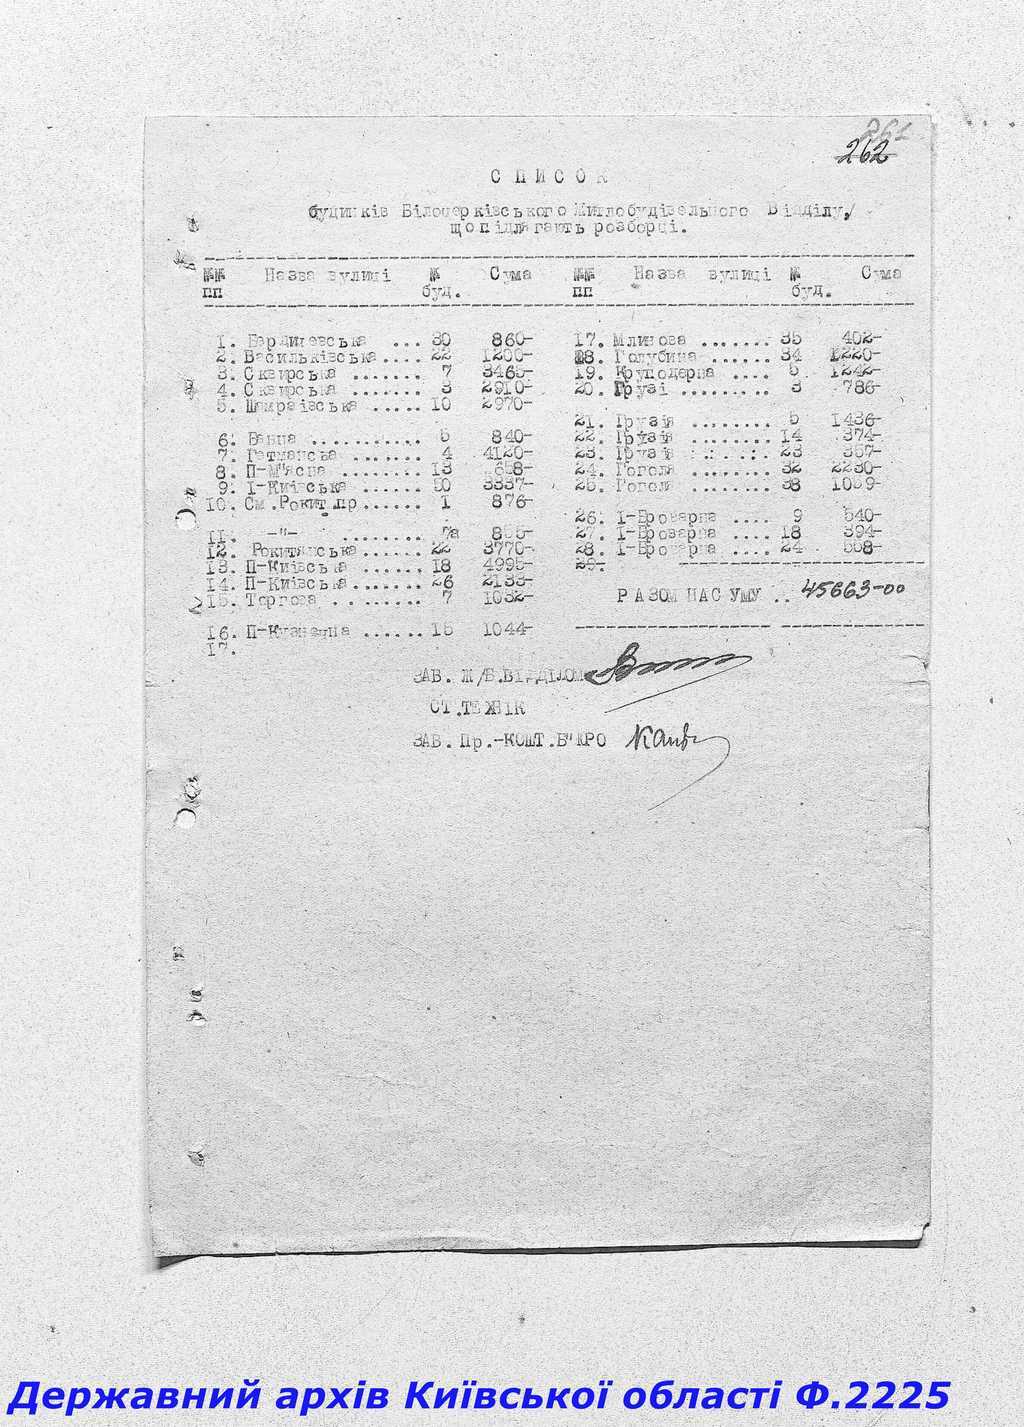 261
262
С П И С О К
будинків Білоцерківського Житлобудівельного Відділу,
що підлягають розборці.
№№ Назва вулиці № Сума №№ Назва вулиці № Сума
пп буд. пп буд.
1. Бердичевська ... 30 860- 17. Млинова ....... 35 402-
2. Васильківська.... 22 1200- 18. Голубина ...... 34 1220-
3. Сквирська ....... 7 3465- 19. Круподерна .... 5 1242-
4. Сквирська ....... 3 2910- 20. Грузі ......... 3 786-
5. Шамраївська ..... 10 2970-
21. Грузія ........ 5 1436-
6. ........... 5 840- 22. Грузія ........ 14 374-
7. Гетманська ....... 4 4120- 23. Грузія ........ 23 357-
8. П-М"ясна ........ 13 658- 24. Гоголя ........ 32 2230-
9. І-Київська ...... 50 3337- 25. Гоголя ........ 38 1059-
10. См.Рокит.пр...... 1 876-
26. І-Броварна .... 9 540-
11. -"- ........ 7а 855- 27. І-Броварна .... 18 394-
12. Рокитянська...... 22 3770- 28. І-Броварна .... 24 558-
13. П-Київська ...... 18 4995- 29.
14. П-Київська....... 26 2133-
15. Торгова ......... 7 1032- РАЗОМ НАСУМУ .. 45663-00
16. П-Кузнечна ...... 15 1044-
17.
ЗАВ. Ж/Б.ВІДДІЛОМ
СТ.ТЕХНІК
ЗАВ. Пр.-КОШТ.Б"ЮРО
Державний архів Київської області Ф.2225